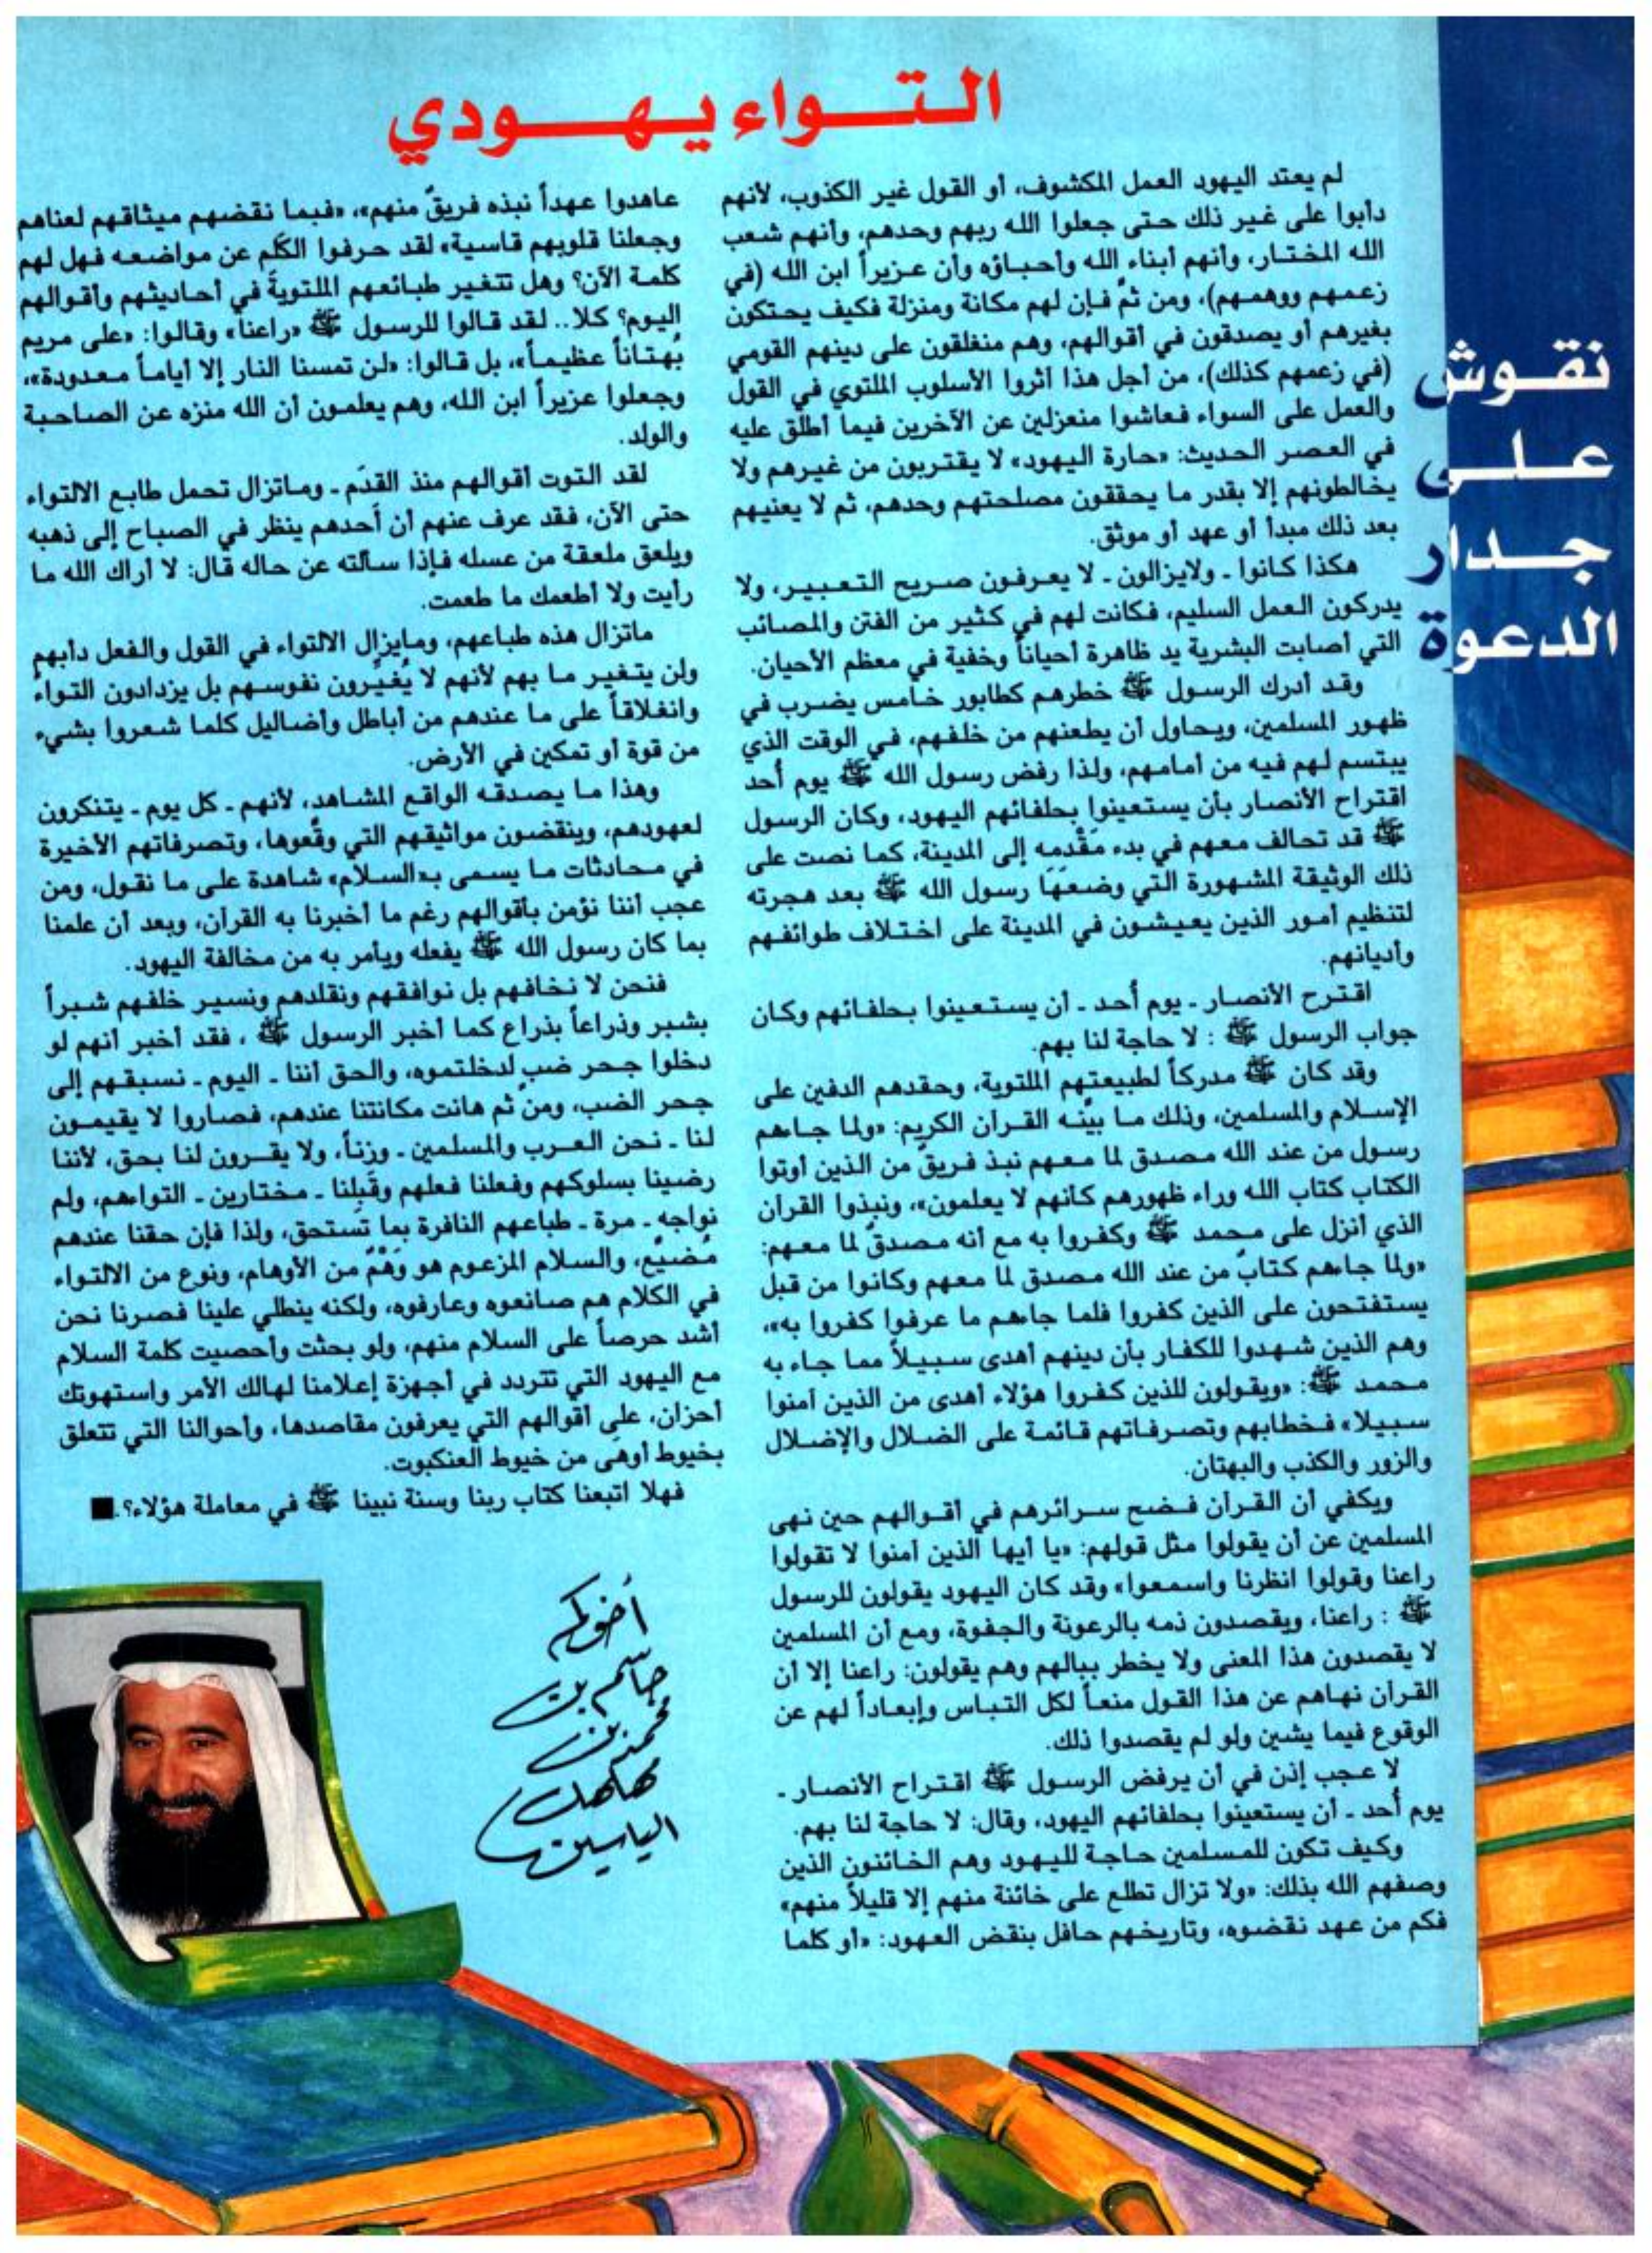 التواء يهودي
نقوش
على
جدار
الدعوة
لم يعتد اليهود العمل المكشوف، أو القول غير الكذوب، لأنهم
دأبوا على غير ذلك حتى جعلوا الله ربهم وحدهم، وأنهم شعب
الله المختار، وأنهم أبناء الله وأحباؤه وأن عزيراً ابن الله (في
زعمهم ووهمهم)، ومن ثمّ فإن لهم مكانة ومنزلة فكيف يحتكون
بغيرهم أو يصدقون في أقوالهم، وهم منغلقون على دينهم القومي
(في زعمهم كذلك)، من أجل هذا آثروا الأسلوب الملتوي في القول
والعمل على السواء فعاشوا منعزلين عن الآخرين فيما أطلق عليه
في العصر الحديث: «حارة اليهود» لا يقتربون من غيرهم ولا
يخالطونهم إلا بقدر ما يحققون مصلحتهم وحدهم، ثم لا يعنيهم
بعد ذلك مبدأ أو عهد أو موثق.
هكذا كانوا ـ ولايزالون ـ لا يعرفون صريح التعبير، ولا
يدركون العمل السليم، فكانت لهم في كثير من الفتن والمصائب
التي أصابت البشرية يد ظاهرة أحياناً وخفية في معظم الأحيان.
وقد أدرك الرسول ﷺ خطرهم كطابور خامس يضرب في
ظهور المسلمين، ويحاول أن يطعنهم من خلفهم، في الوقت الذي
يبتسم لهم فيه من أمامهم، ولذا رفض رسول الله ﷺ يوم أُحد
اقتراح الأنصار بأن يستعينوا بحلفائهم اليهود، وكان الرسول
ﷺ قد تحالف معهم في بدء مَقْدمه إلى المدينة، كما نصت على
ذلك الوثيقة المشهورة التي وضعَهَا رسول الله ﷺ بعد هجرته
لتنظيم أمور الذين يعيشون في المدينة على اختلاف طوائفهم
وأديانهم.
اقترح الأنصار ـ يوم أُحد ـ أن يستعينوا بحلفائهم وكان
جواب الرسول ﷺ : لا حاجة لنا بهم.
وقد كان ﷺ مدركاً لطبيعتهم الملتوية، وحقدهم الدفين على
الإسلام والمسلمين، وذلك ما بيّنه القرآن الكريم: «ولما جاءهم
رسول من عند الله مصدق لما معهم نبذ فريقٌ من الذين أوتوا
الكتاب كتاب الله وراء ظهورهم كأنهم لا يعلمون»، ونبذوا القرآن
الذي أنزل على محمد ﷺ وكفروا به مع أنه مصدقٌ لما معهم:
«ولما جاءهم كتابٌ من عند الله مصدق لما معهم وكانوا من قبل
يستفتحون على الذين كفروا فلما جاءهم ما عرفوا كفروا به»،
وهم الذين شهدوا للكفار بأن دينهم أهدى سبيلاً مما جاء به
محمد ﷺ: «ويقولون للذين كفروا هؤلاء أهدى من الذين آمنوا
سبيلا» فخطابهم وتصرفاتهم قائمة على الضلال والإضلال
والزور والكذب والبهتان.
ويكفي أن القرآن فضح سرائرهم في أقوالهم حين نهى
المسلمين عن أن يقولوا مثل قولهم: «يا أيها الذين آمنوا لا تقولوا
راعنا وقولوا انظرنا واسمعوا» وقد كان اليهود يقولون للرسول
ﷺ : راعنا، ويقصدون ذمه بالرعونة والجفوة، ومع أن المسلمين
لا يقصدون هذا المعنى ولا يخطر ببالهم وهم يقولون: راعنا إلا أن
القرآن نهاهم عن هذا القول منعاً لكل التباس وإبعاداً لهم عن
الوقوع فيما يشين ولو لم يقصدوا ذلك.
لا عجب إذن في أن يرفض الرسول ﷺ اقتراح الأنصار ـ
يوم أُحد ـ أن يستعينوا بحلفائهم اليهود، وقال: لا حاجة لنا بهم.
وكيف تكون للمسلمين حاجة لليهود وهم الخائنون الذين
وصفهم الله بذلك: «ولا تزال تطلع على خائنة منهم إلا قليلاً منهم»
فكم من عهد نقضوه، وتاريخهم حافل بنقض العهود: «أو كلما
عاهدوا عهداً نبذه فريقٌ منهم»، «فبما نقضهم ميثاقهم لعناهم
وجعلنا قلوبهم قاسية» لقد حرفوا الكَلم عن مواضعه فهل لهم
كلمة الآن؟ وهل تتغير طبائعهم الملتويةَ في أحاديثهم وأقوالهم
اليوم؟ كلا.. لقد قالوا للرسول ﷺ «راعنا» وقالوا: «على مريم
بُهتاناً عظيماً»، بل قالوا: «لن تمسنا النار إلا أياماً معدودة»،
وجعلوا عزيراً ابن الله، وهم يعلمون أن الله منزه عن الصاحبة
والولد.
لقد التوت أقوالهم منذ القدَم ـ وماتزال تحمل طابع الالتواء
حتى الآن، فقد عرف عنهم أن أحدهم ينظر في الصباح إلى ذهبه
ويلعق ملعقة من عسله فإذا سألته عن حاله قال: لا أراك الله ما
رأيت ولا أطعمك ما طعمت.
ماتزال هذه طباعهم، ومايزال الالتواء في القول والفعل دأبهم
ولن يتغير ما بهم لأنهم لا يُغيّرون نفوسهم بل يزدادون التواءً
وانغلاقاً على ما عندهم من أباطل وأضاليل كلما شعروا بشيء
من قوة أو تمكين في الأرض.
وهذا ما يصدقه الواقع المشاهد، لأنهم ـ كل يوم ـ يتنكرون
لعهودهم، وينقضون مواثيقهم التي وقّعوها، وتصرفاتهم الأخيرة
في محادثات ما يسمى بـ«السلام» شاهدة على ما نقول، ومن
عجب أننا نؤمن بأقوالهم رغم ما أخبرنا به القرآن، وبعد أن علمنا
بما كان رسول الله ﷺ يفعله ويأمر به من مخالفة اليهود.
فنحن لا نخافهم بل نوافقهم ونقلدهم ونسير خلفهم شبراً
بشبر وذراعاً بذراع كما أخبر الرسول ﷺ ، فقد أخبر أنهم لو
دخلوا جحر ضب لدخلتموه، والحق أننا ـ اليوم ـ نسبقهم إلى
جحر الضب، ومن ثم هانت مكانتنا عندهم، فصاروا لا يقيمون
لنا ـ نحن العرب والمسلمين ـ وزناً، ولا يقرون لنا بحق، لأننا
رضينا بسلوكهم وفعلنا فعلهم وقَبِلنا ـ مختارين ـ التواءهم، ولم
نواجه ـ مرة ـ طباعهم النافرة بما تَستحق، ولذا فإن حقنا عندهم
مُضيّع، والسلام المزعوم هو وَهْمٌ من الأوهام، ونوع من الالتواء
في الكلام هم صانعوه وعارفوه، ولكنه ينطلي علينا فصرنا نحن
أشد حرصاً على السلام منهم، ولو بحثت وأحصيت كلمة السلام
مع اليهود التي تتردد في أجهزة إعلامنا لهالك الأمر واستهوتك
أحزان، على أقوالهم التي يعرفون مقاصدها، وأحوالنا التي تتعلق
بخيوط أوهَى من خيوط العنكبوت.
فهلا اتبعنا كتاب ربنا وسنة نبينا ﷺ في معاملة هؤلاء؟.■
أخوكم
جاسم بن
محمد بن
مهلهل
الياسين